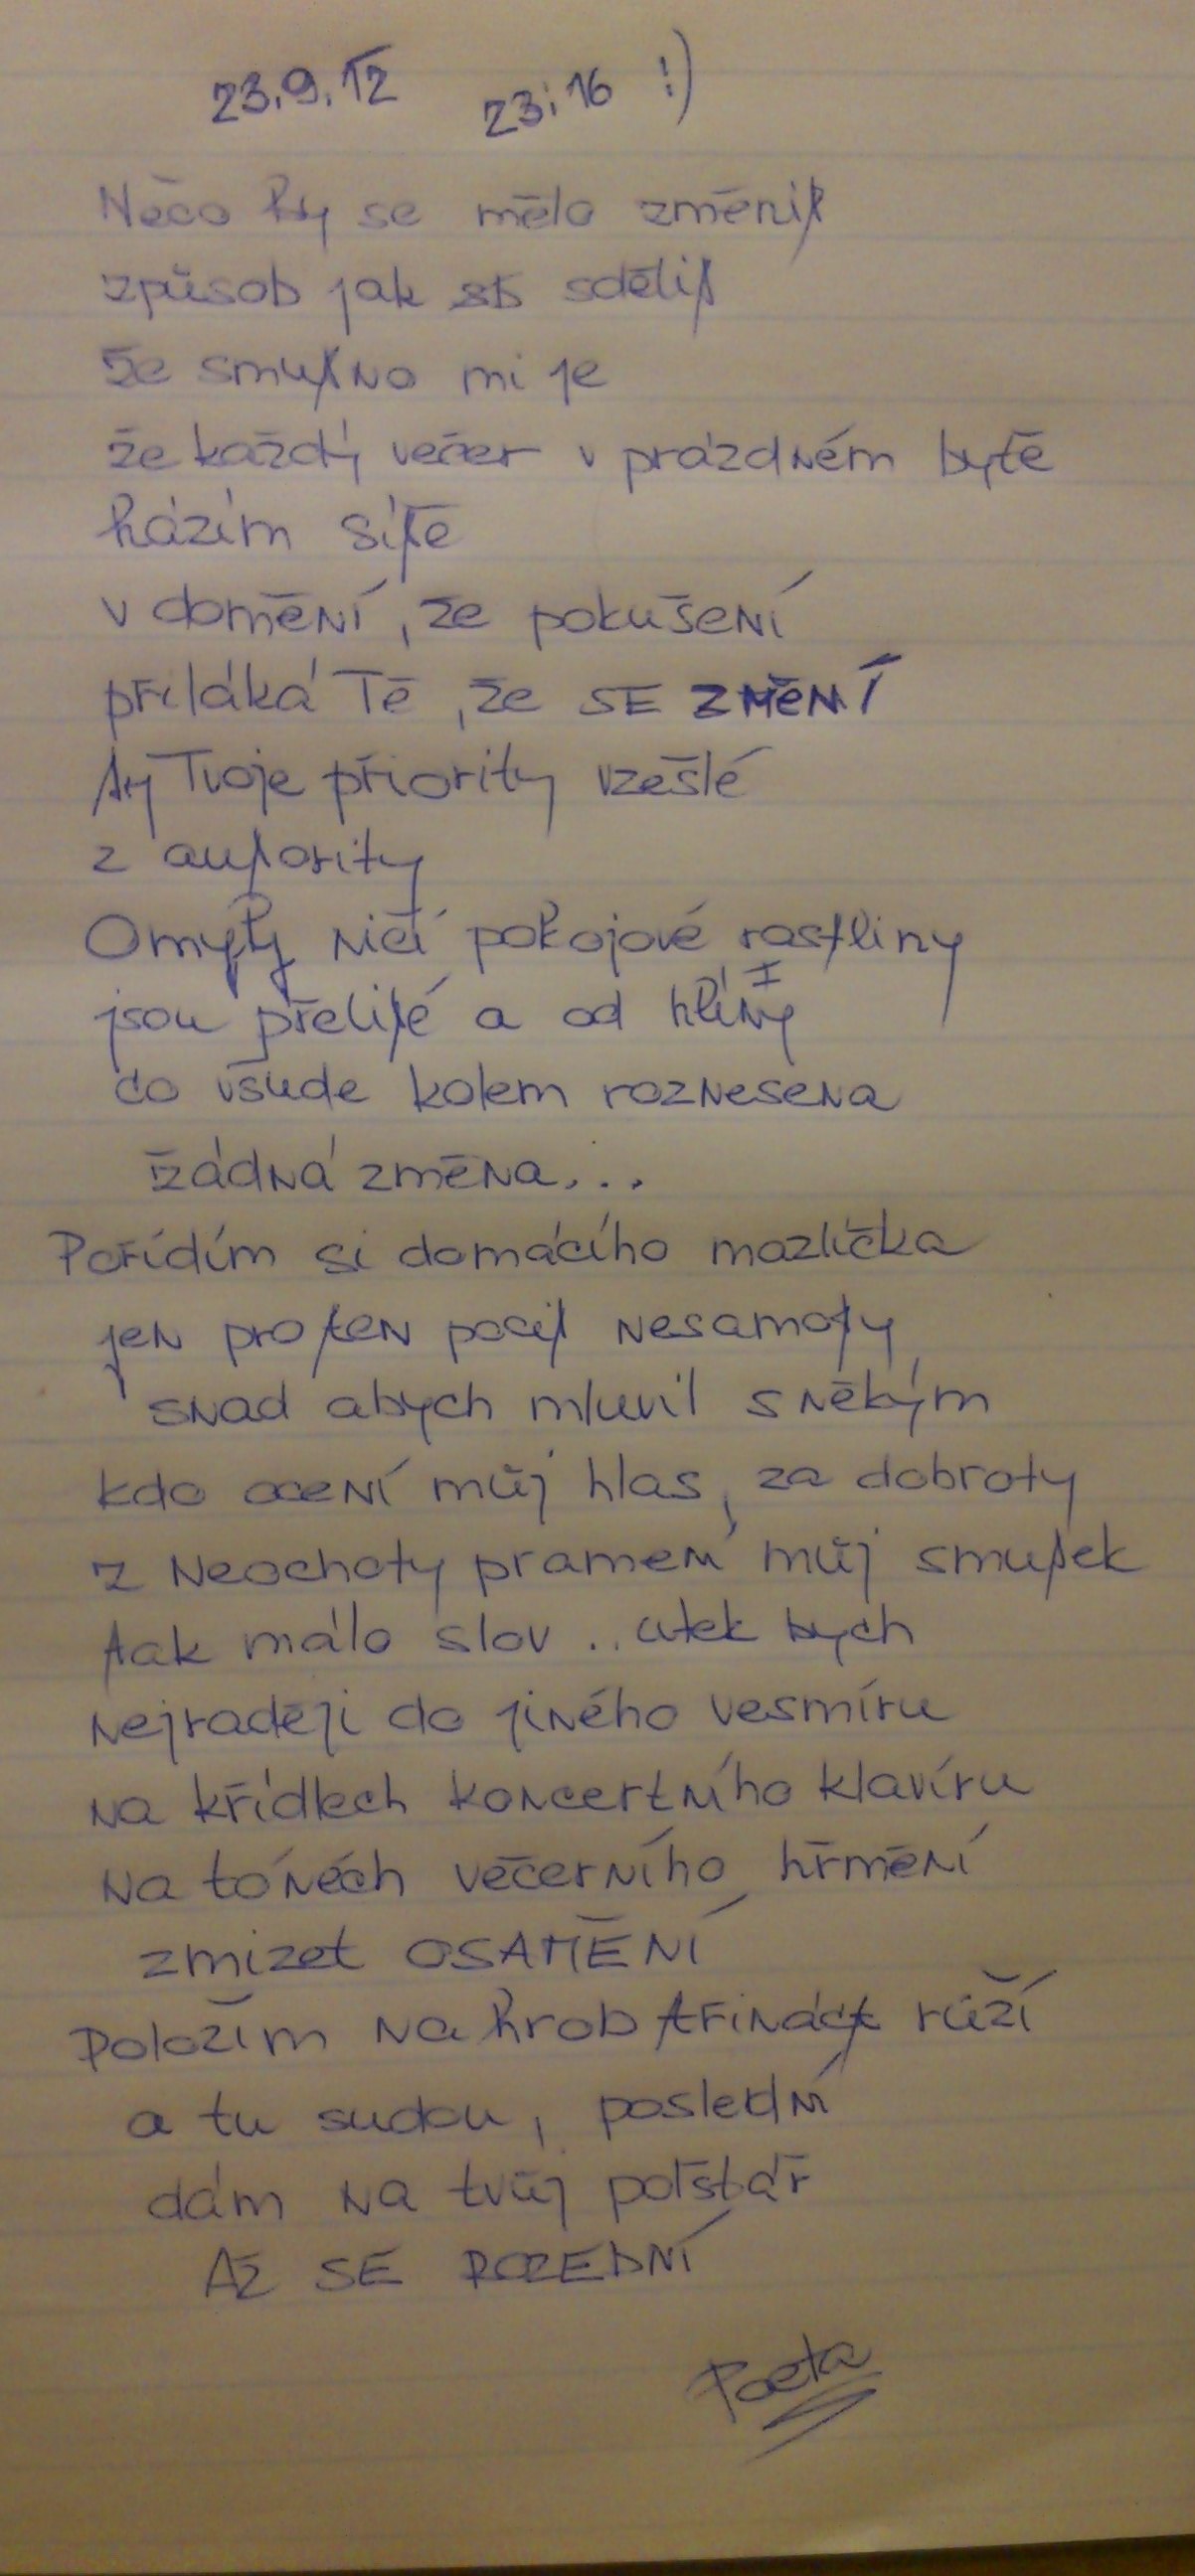 23.9.12 23:16 :)
Něco by se mělo změnit
způsob jak sdělit
že smutno mi je
že každý večer v prázdném bytě
házím sítě
v domění, že pokušení
přiláká Tě, že SE ZMĚNÍ
ty Tvoje priority vzešlé
z autority
Omyly ničí pokojové rostliny
jsou přelité a od hlíny
co všude kolem roznesena
žádná změna...
Pořídím si domácího mazlíčka
jen pro ten pocit nesamoty
snad abych mluvil s někým
kdo ocení můj hlas, za dobroty
z Neochoty pramení můj smutek
tak málo slov .. utek bych
nejraději do jiného vesmíru
na křídlech koncertního klavíru
na tónech večerního hřmění
zmizet OSAMĚNÍ
Položím na hrob třináct růží
a tu sudou, poslední
dám na tvůj polštář
AŽ SE ROZEDNÍ
Poeta